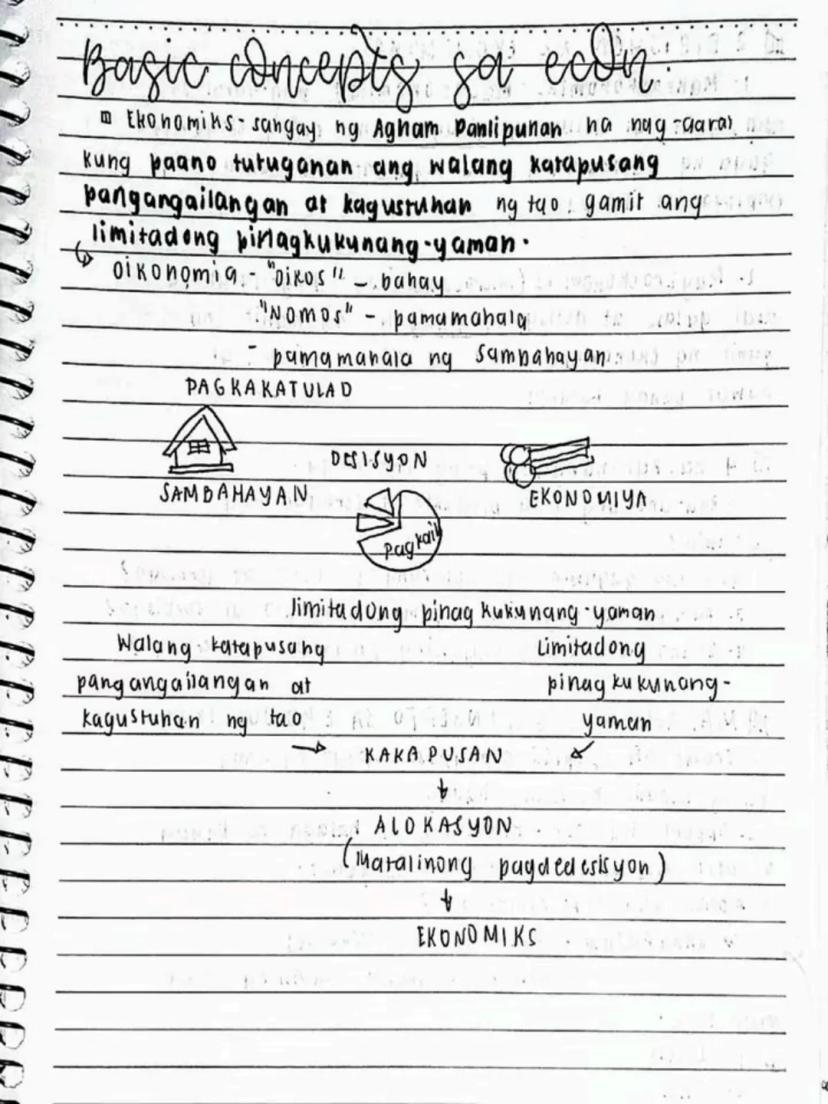 Basic concepts sa econ.
Ekonomiks - sangay ng Agham Panlipunan na nag-aaral
kung paano tutuganan ang walang katapusang
pangangailangan at kagustuhan ng tao. gamit ang
limitadong pinagkukunang-yaman.
↳ oikonomia - "Oikos" - bahay
"NOMOS" - pamamahala
- pamamahala ng sambahayan
PAGKAKATULAD
DESISYON
SAMBAHAYAN EKONOMIYA
Pagkain
limitadong pinagkukunang-yaman
Walang katapusang Limitadong
pangangailangan at pinagkukunang-
kagustuhan ng tao yaman
→ KAKAPUSAN ↙
↓
ALOKASYON
(Matalinong pagdedesisyon)
↓
EKONOMIKS